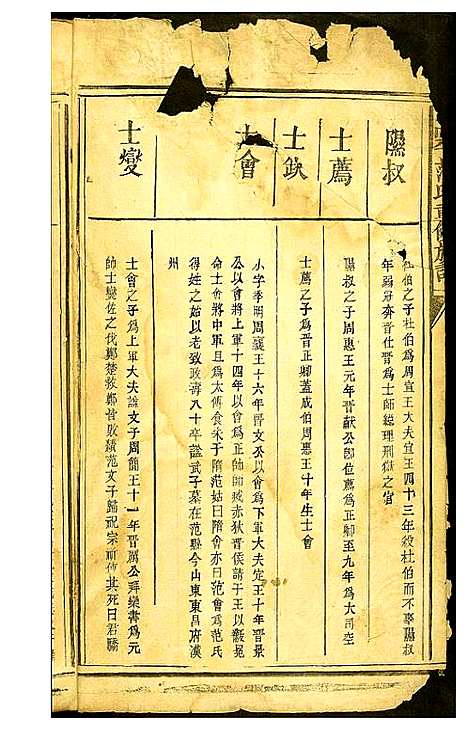 範氏重修族譜
隰叔
杜伯之子杜伯為周宣王大夫宣王四十三年殺杜伯而不辜隰叔
年弱冠奔晉仕晉為士師総理刑獄之官
士蒍
隰叔之子周惠王元年晉献公即位蒍為正卿至九年為大司空
士鈌
士蒍之子為晉正卿蓋成伯周惠王十年生士會
士會
小字季明周襄王十六年晉文公以會為下軍大夫定王十年晉景
公以會將上軍十四年以會為正帥師滅赤狄晉侯請于王以黻冕
命士會將中軍且為太傅食采于范姑曰隋會亦曰范會為范氏
得姓之始以老致政壽八十卒諡武子墓在范縣今山東東昌府濮
州
士燮
士會之子為上軍大夫諡文子周簡王十一年晉厲公舜欒書為元
帥士燮佐之伐鄭楚救鄭皆敗績范文子歸祝宗祈使其死曰君驕